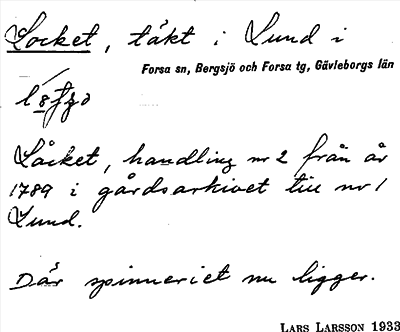 Locket, täkt i Lund i
Forsa sn, Bergsjö och Forsa tg, Gävleborgs län
Låcket, handling nr 2 från år
1789 i gårdsarkivet till nr 1
Lund.
Där spinneriet nu ligger.
LARS LARSSON 1933